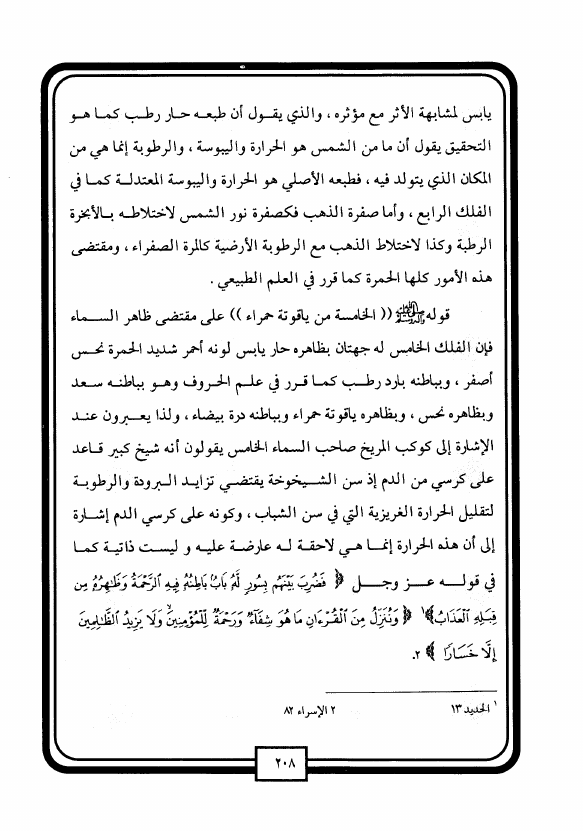 يابس لمشابهة الأثر مع مؤثره ، والذي يقول أن طبعه حار رطب كما هو
التحقيق يقول أن ما من الشمس هو الحرارة واليبوسة ، والرطوبة إنما هي من
المكان الذي يتولد فيه ، فطبعه الأصلي هو الحرارة واليبوسة المعتدلة كما في
الفلك الرابع ، وأما صفرة الذهب فكصفرة نور الشمس لاختلاطه بالأبخرة
الرطبة وكذا لاختلاط الذهب مع الرطوبة الأرضية كالمرة الصفراء ، ومقتضى
هذه الأمور كلها الحمرة كما قرر في العلم الطبيعي .
قوله ﷺ (( الخامسة من ياقوتة حمراء )) على مقتضى ظاهر السماء
فإن الفلك الخامس له جهتان بظاهره حار يابس لونه أحمر شديد الحمرة نحس
أصفر ، وبباطنه بارد رطب كما قرر في علم الحروف وهو بباطنه سعد
وبظاهره نحس ، وبظاهره ياقوتة حمراء وبباطنه درة بيضاء ، ولذا يعبرون عند
الإشارة إلى كوكب المريخ صاحب السماء الخامس يقولون أنه شيخ كبير قاعد
على كرسي من الدم إذ سن الشيخوخة يقتضي تزايد البرودة والرطوبة
لتقليل الحرارة الغريزية التي في سن الشباب ، وكونه على كرسي الدم إشارة
إلى أن هذه الحرارة إنما هي لاحقة له عارضة عليه و ليست ذاتية كما
في قوله عز وجل ﴿ فَضُرِبَ بَيْنَهُم بِسُورٍ لَّهُ بَابٌ بَاطِنُهُ فِيهِ الرَّحْمَةُ وَظَاهِرُهُ مِن
قِبَلِهِ الْعَذَابُ ﴾١ ﴿ وَنُنَزِّلُ مِنَ الْقُرْءَانِ مَا هُوَ شِفَاءٌ وَرَحْمَةٌ لِّلْمُؤْمِنِينَ وَلَا يَزِيدُ الظَّالِمِينَ
إِلَّا خَسَارًا ﴾ ٢.
١ الحديد ١٣ ٢ الإسراء ٨٢
٢٠٨